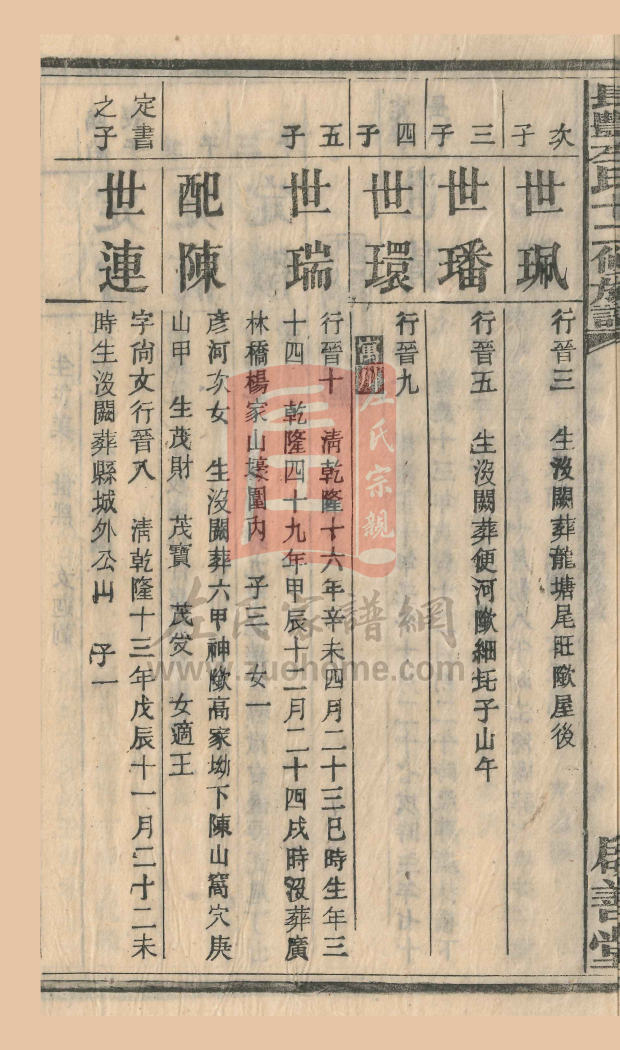 長豐左氏十二修族譜
居善堂
次子
世珮
行晉三　生沒闕葬龍塘尾旺歐屋後
三子
世璠
行晉五　生沒闕葬便河歐細圫子山午
四子
世環
行晉九
寓川
五子
世瑞
行晉十　清乾隆十六年辛未四月二十三巳時生年三
十四　乾隆四十九年甲辰十二月二十四戌時沒葬廣
林橋楊家山壕圍內　子三　女一
配陳
彥河次女　生沒闕葬六甲神歐高家坳下陳山窩穴庚
山甲　生茂財　茂寶　茂發　女適王
定書之子
世連
字尚文行晉八　清乾隆十三年戊辰十一月二十二未
時生沒闕葬縣城外公山　子一
左氏宗親
左氏家譜網
www.zuohome.com